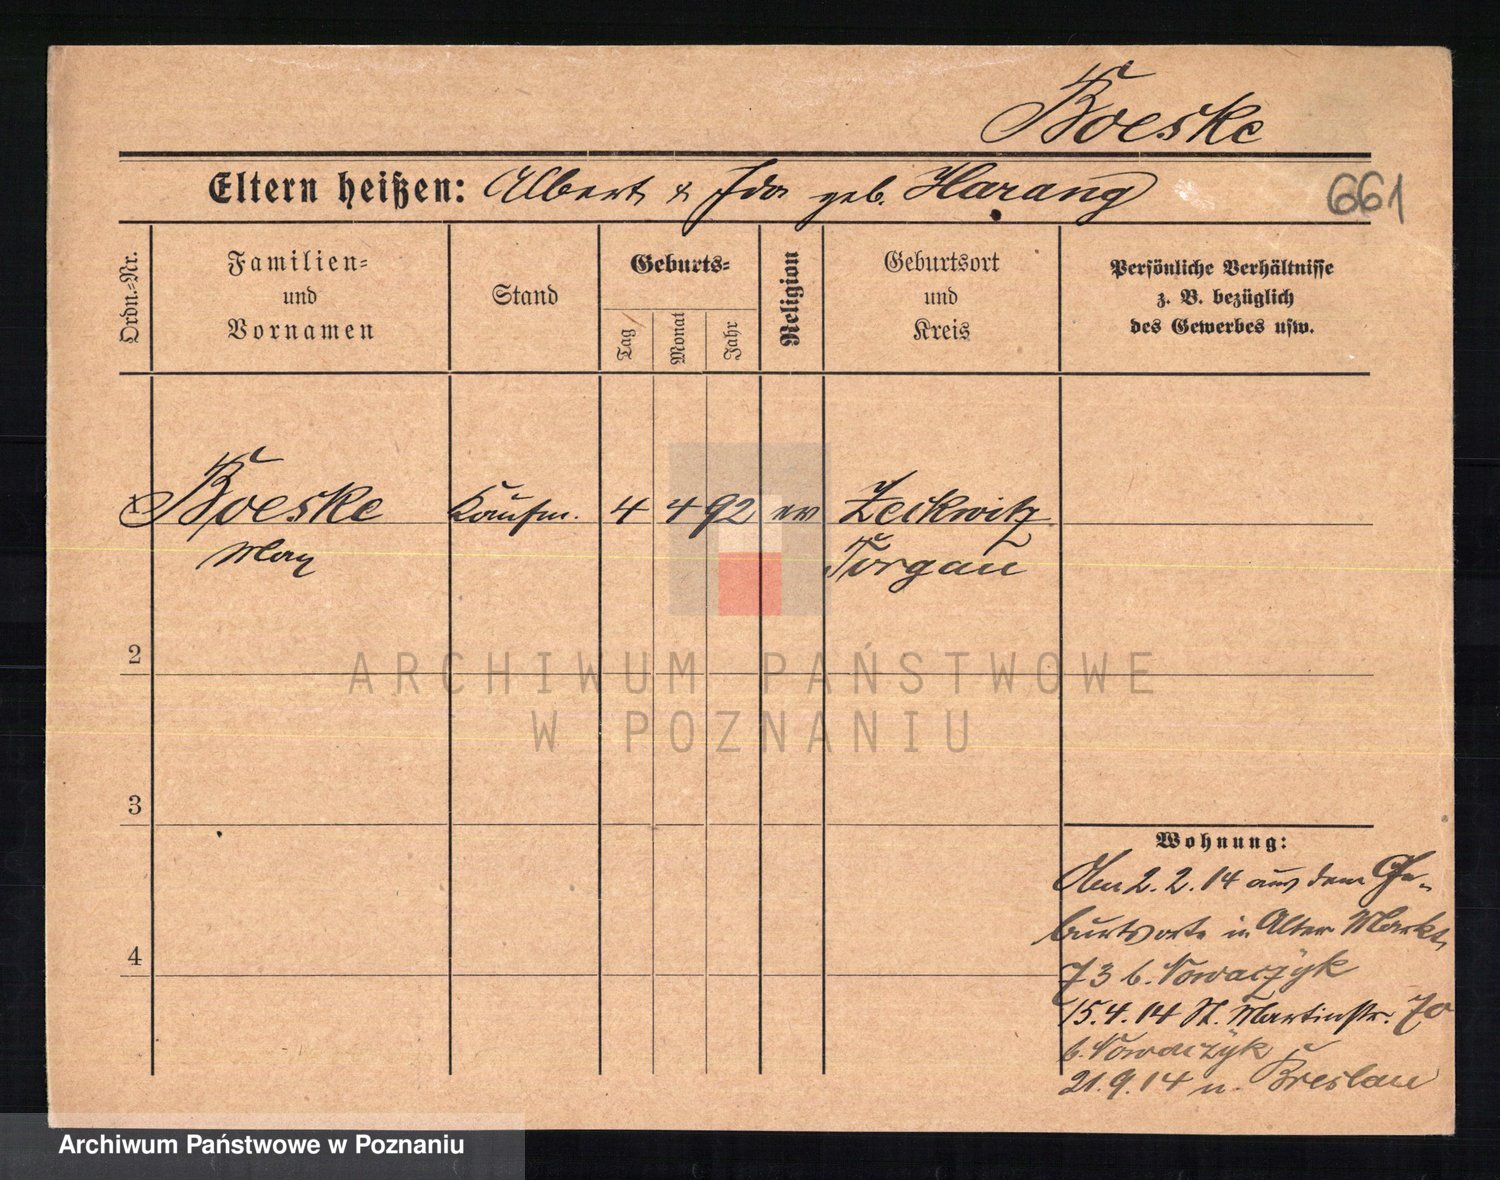 Boeske
Eltern heißen: Albert & Ida geb. Harang
661
Ordn.-Nr.
Familien-
und
Vornamen
Stand
Geburts-
Tag
Monat
Jahr
Religion
Geburtsort
und
Kreis
Persönliche Verhältnisse
z. B. bezüglich
des Gewerbes usw.
1 Boeske Kaufm. 4 4 92 ev Zeckwitz
Max Torgau
2
ARCHIWUM PAŃSTWOWE
W POZNANIU
3
Wohnung:
2.2.14 aus dem Ge-
burtsorte in Alter Markt
4
73 b. Nowaczyk
15.4.14 St. Martinstr. 70
b. Nowaczyk
21.9.14 n. Breslau
Archiwum Państwowe w Poznaniu